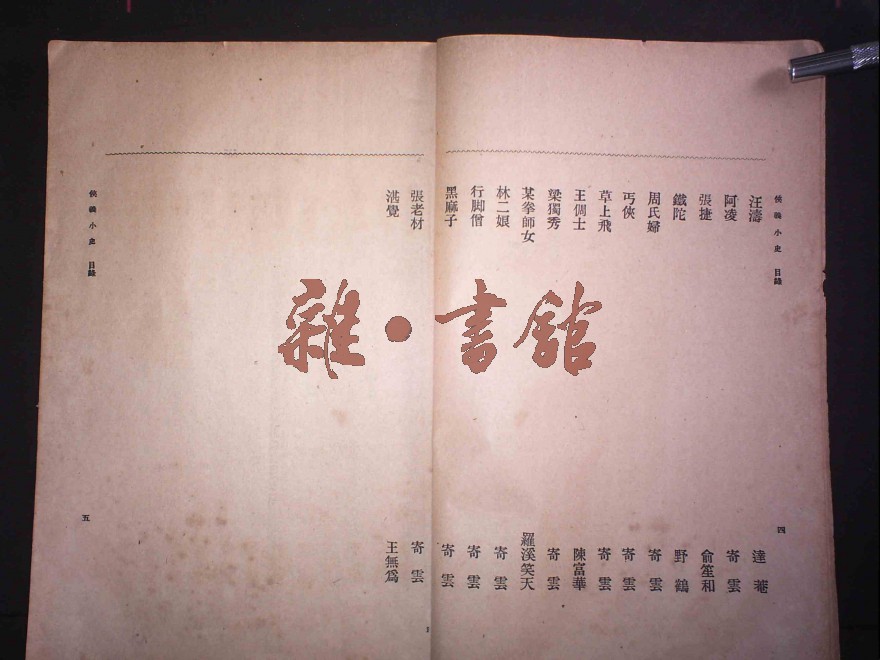 俠義小史 目錄
汪濤 達菴
阿凌 寄雲
張捷 俞笙和
鐵陀 野鶴
周氏婦 寄雲
丐俠 寄雲
草上飛 寄雲
王倜士 陳富華
梁獨秀 寄雲
某拳師女 羅溪笑天
林二娘 寄雲
行脚僧 寄雲
黑麻子 寄雲
四
張老材 寄雲
湛覺 王無爲
俠義小史 目錄
五
雜·書館